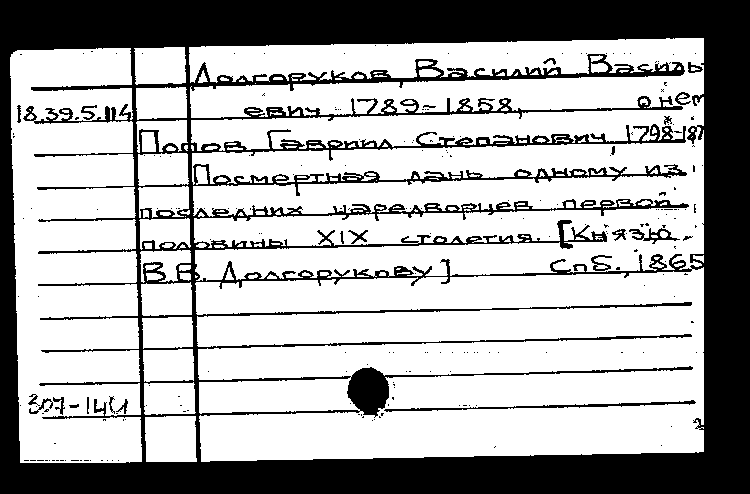 Долгоруков, Василий Василь-
18.39.5.114 евич, 1789-1858, о нем
Попов, Гавриил Степанович, 1798-187
Посмертная дань одному из
последних царедворцев первой
половины XIX столетия. [Князю
В.В. Долгорукову] Спб., 1865
307-14